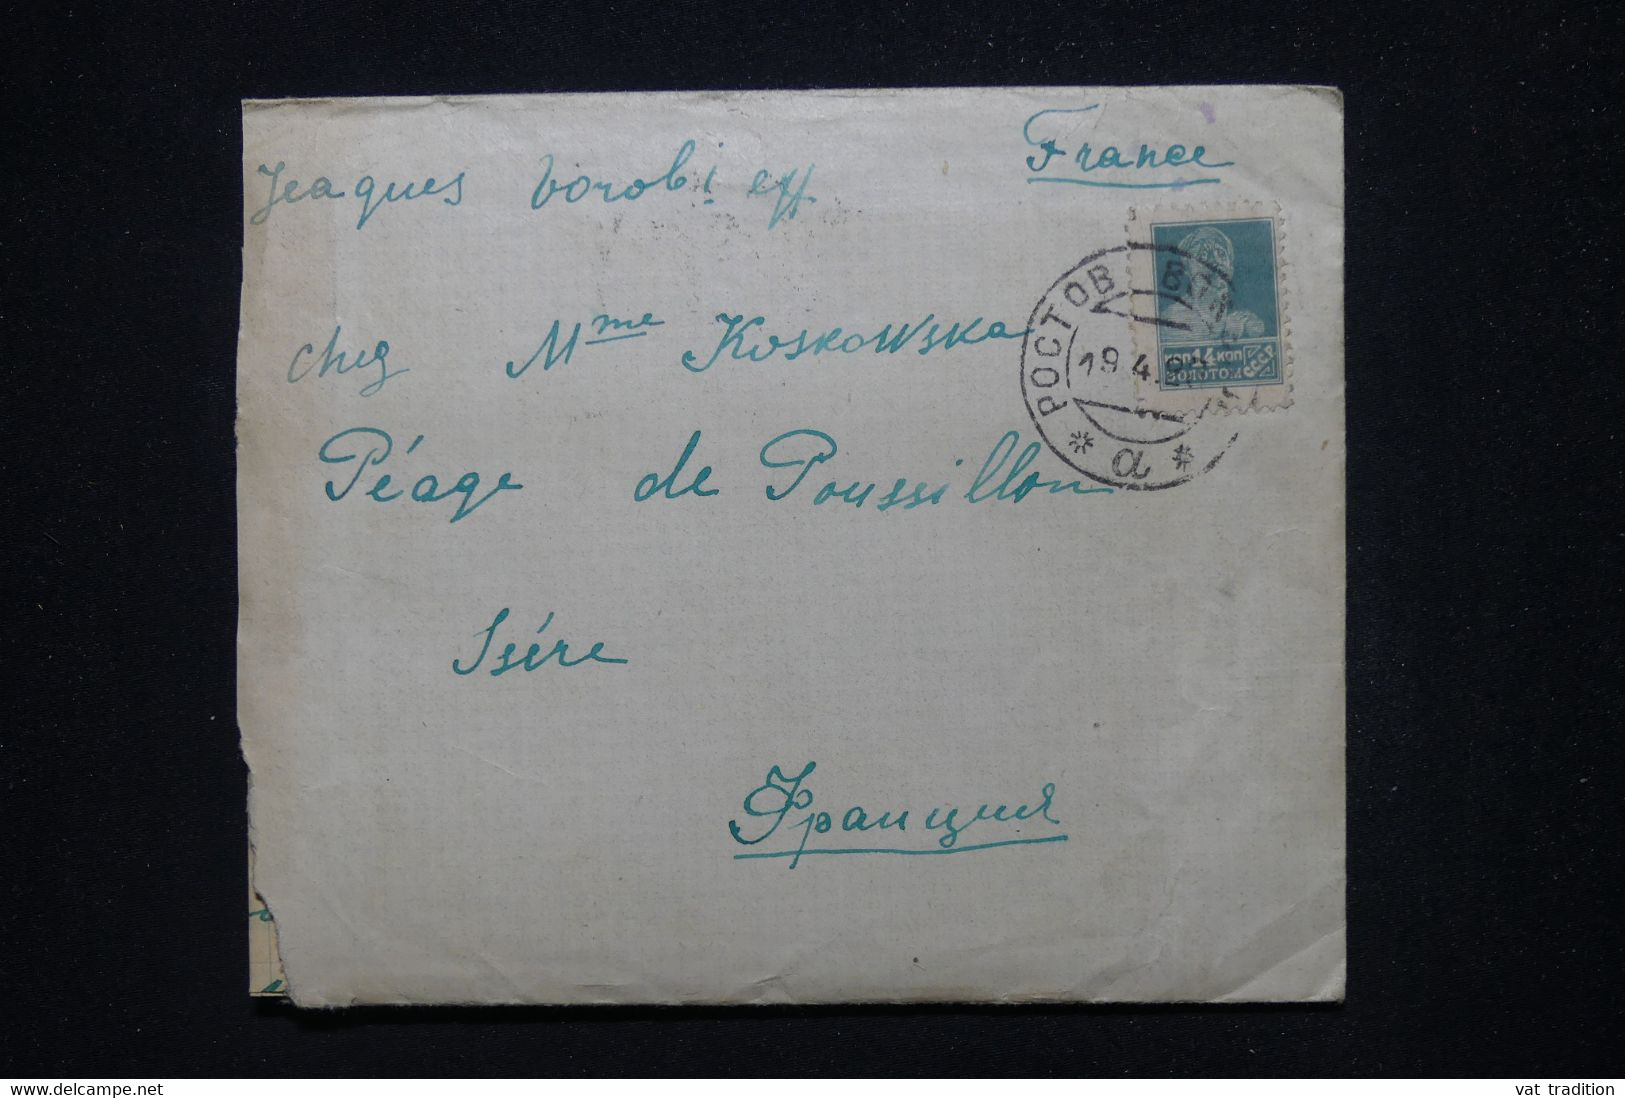 France
Jeaques Vorobieff
chez Mme Koskowska
Péage de Poussillon
Isère
Франция
РОСТОВ
19.4.2
* a *
КОП 14 КОП
ЗОЛОТОМ СССР
delcampe.net
vat tradition